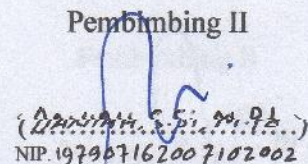 Pembimbing II
(............ S.Si, M.Pd......)
NIP. 197907162007102002